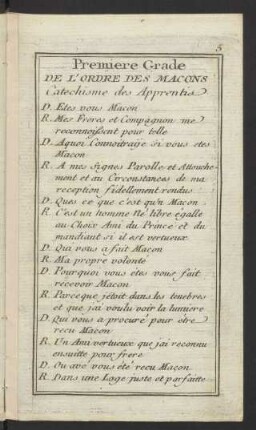 5
Premiere Grade
DE L'ORDRE DES MACONS
Catechisme des Apprentis
D. Etes vous Macon
R. Mes Freres et Compagnon me
reconnoissent pour telle
D. Aquoi Connoitrage si vous etes
Macon
R. A mes Signes Parolle et Attouche-
ment et au Circonstances de ma
reception fidellement rendus
D. Ques ce que c'est qu'n Macon
R. C'est un homme Né libre égalle
au Choix Ami du Prince et du
mandiant si il est vertueux
D. Qui vous a fait Macon
R. Ma propre volonté
D. Pourquoi vous etes vous fait
recevoir Macon
R. Parceque jétoit dans les tenebres
et que jai voulu voir la lumiere
D. Qui vous a procuré pour etre
recu Macon
R. Un Ami vertueux que jai reconnu
ensuitte pour frere
D. Ou avé vous été recu Macon
R. Dans une Loge juste et parfaitte